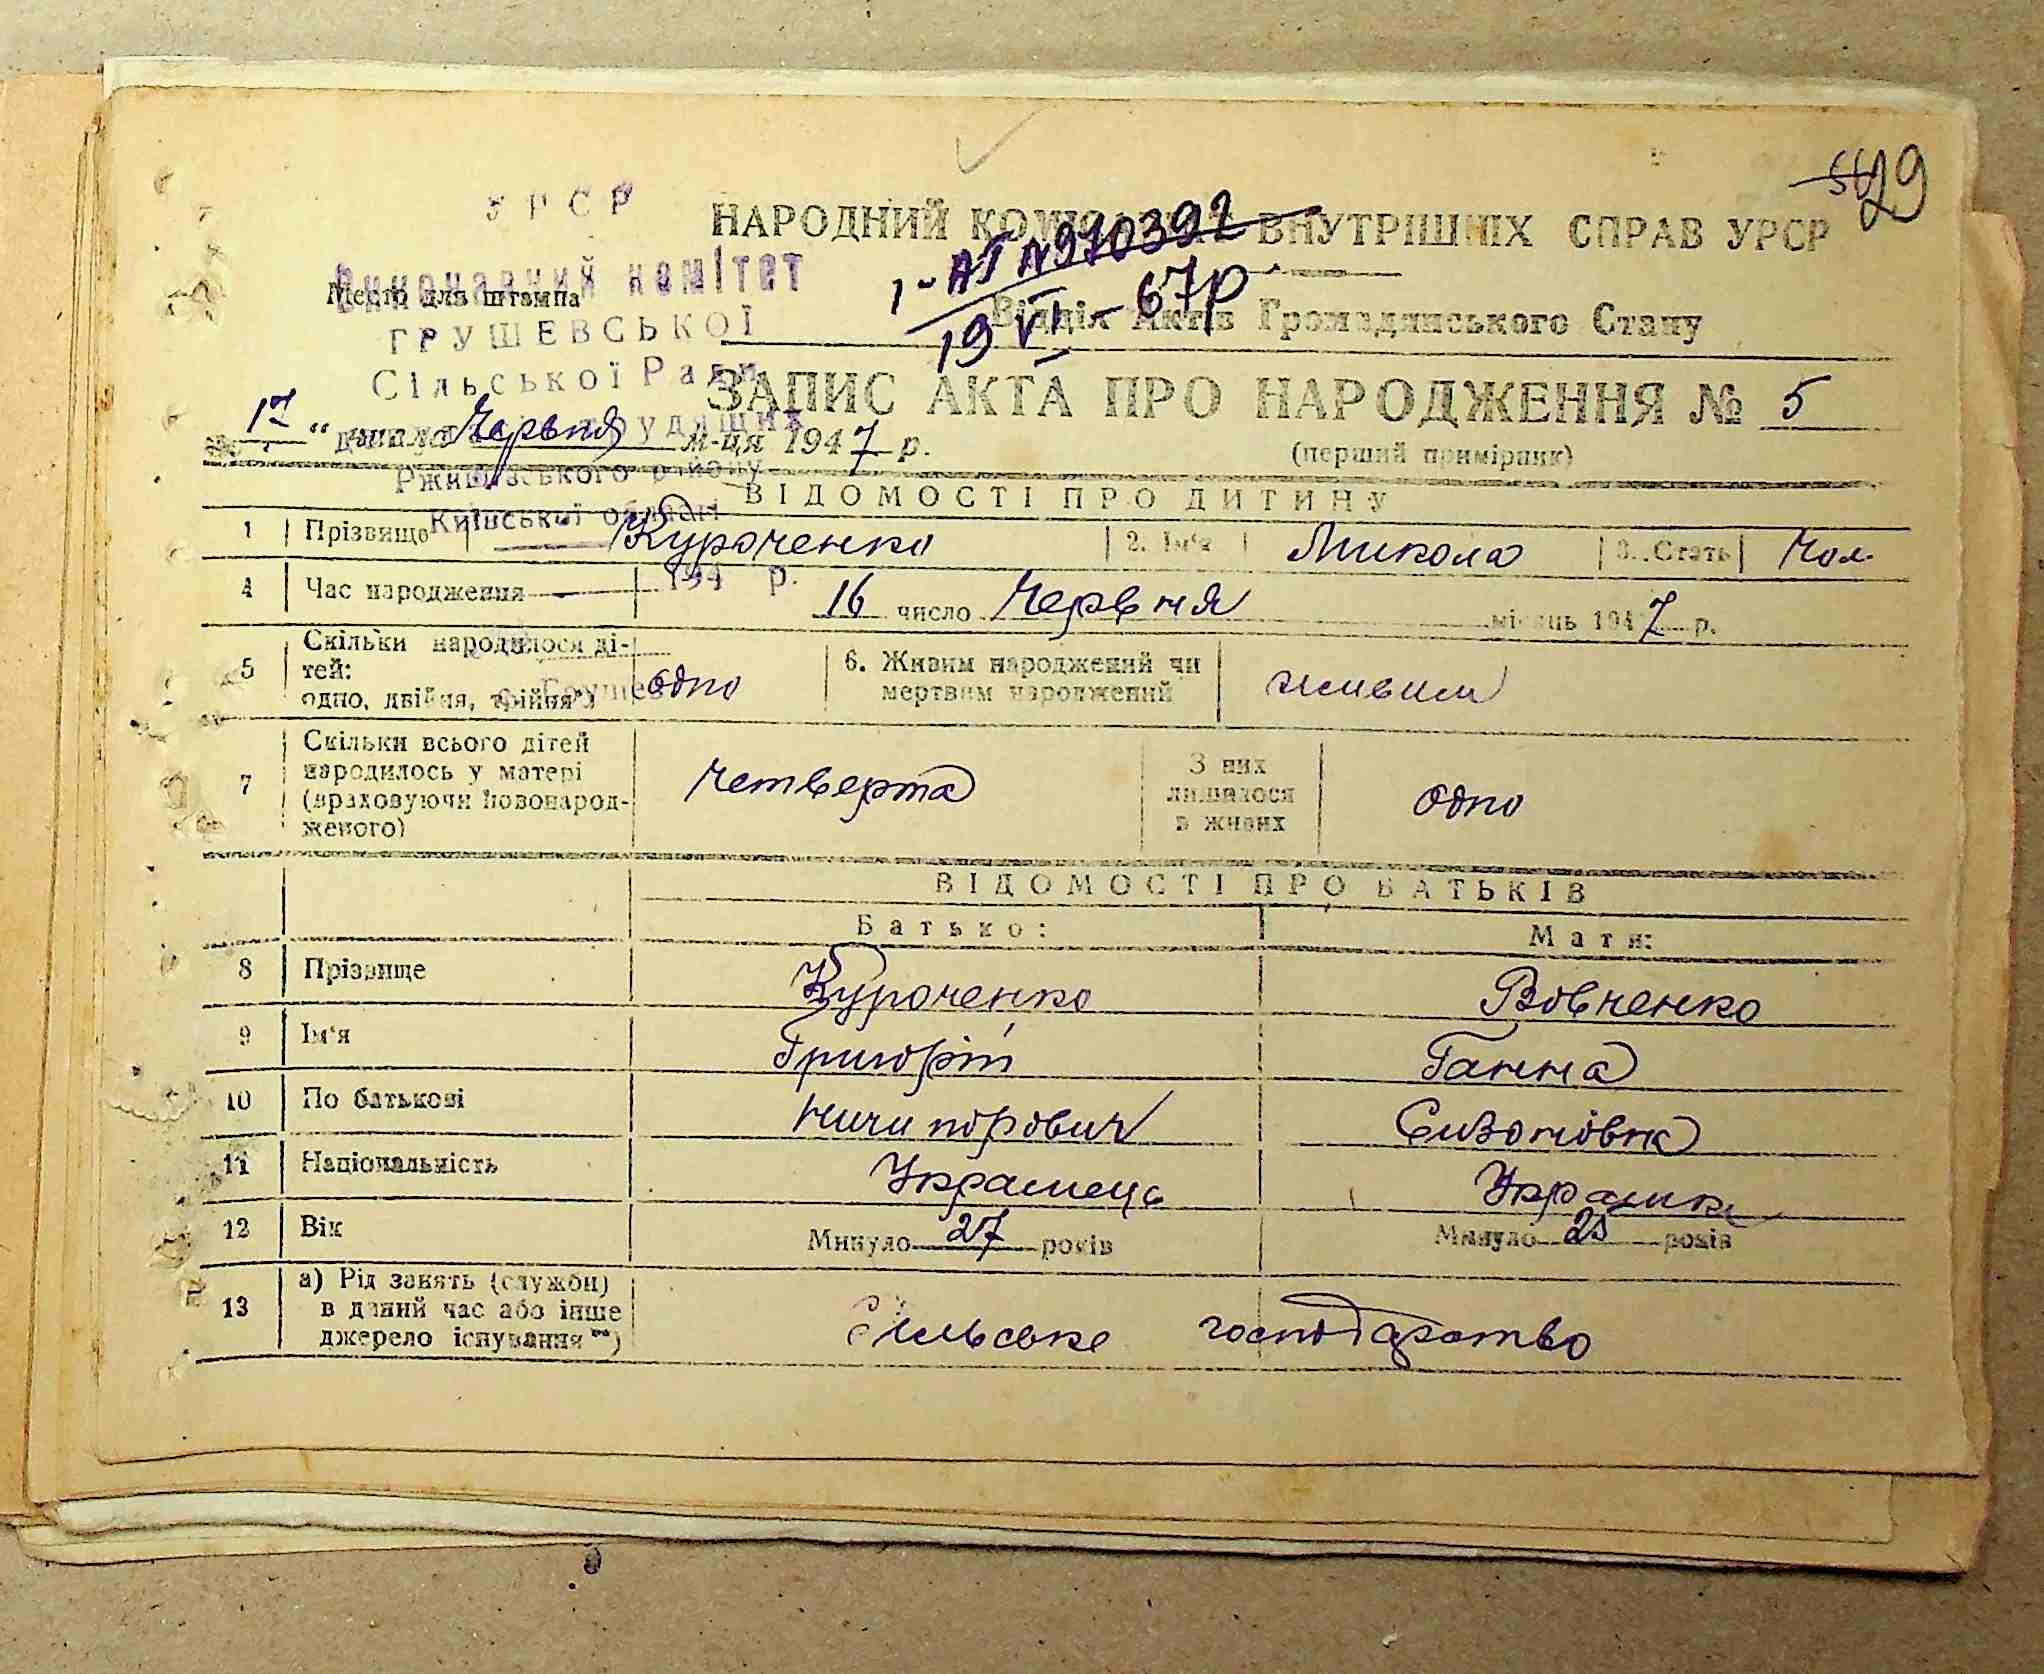 29
УРСР
Виконавчий комітет
ГРУШЕВСЬКОЇ
Сільської Ради
трудящих
Ржищівського району
Київської області
194 р.
Место для штампа
НАРОДНИЙ КОМІСАРІАТ ВНУТРІШНІХ СПРАВ УРСР
1-АГ №970392
19 VI - 67р.
Відділ Актів Громадянського Стану
ЗАПИС АКТА ПРО НАРОДЖЕННЯ № 5
(перший примірник)
"17" числа Червня м-ця 1947 р.
ВІДОМОСТІ ПРО ДИТИНУ
1 Прізвище Куроченко 2. Ім'я Микола 3. Стать Чол.
4 Час народження 16 число Червня місяць 1947 р.
5 Скільки народилося ді-
тей:
одно, двійня, трійня*) одно
6. Живим народжений чи
мертвим народжений живим
7 Скільки всього дітей
народилось у матері
(враховуючи новонарод-
женого) четверта
З них
лишилося
в живих одно
ВІДОМОСТІ ПРО БАТЬКІВ
Батько: Мати:
8 Прізвище Куроченко Вовченко
9 Ім'я Григорій Ганна
10 По батькові Ничипорович Сизонівна
11 Національність Украинець Украинка
12 Вік Минуло 27 років Минуло 25 років
13 а) Рід занять (служби)
в даний час або інше
джерело існування**) Сільське господарство